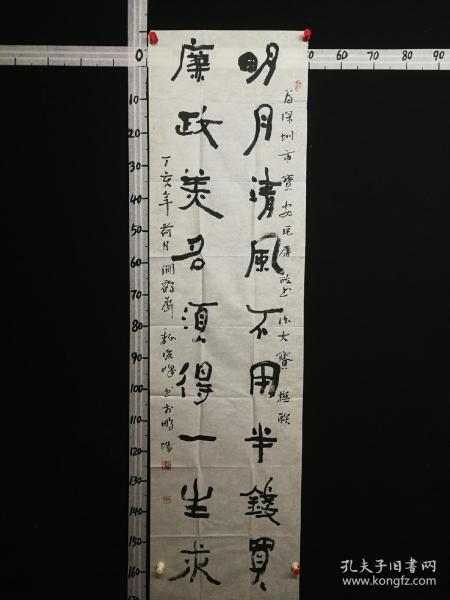 明月清風不用半錢買
為深圳市寶安區廉政書法大賽 撰聯
廉政美名須得一生求
丁亥年荷月
孔夫子旧书网
www.kongfz.com
0
10
20
30
40
50
60
70
80
90
100
110
120
130
140
150
160
50
60
70
80
90